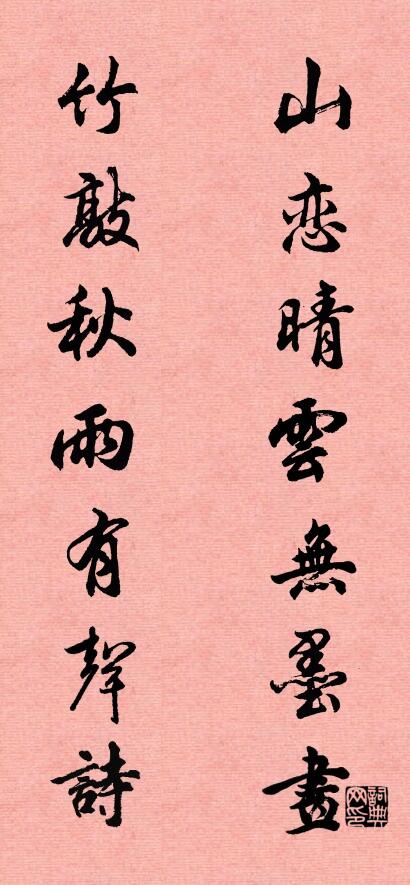 山恋晴雲無墨畫
竹敲秋雨有聲詩
詞典網印